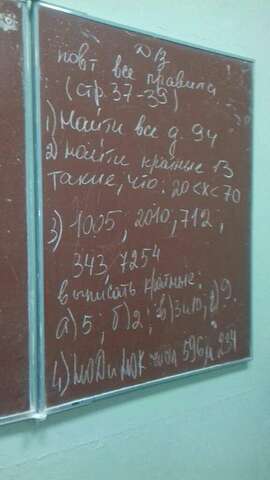 Д/З
повт все правила
(стр. 37-39)
1) Найти все д. 94
2) найти кратные 13
такие, что: 20 < x < 70
3) 1005, 2010, 712,
343, 7254
выписать кратные:
а) 5; б) 2; в) 3 и 10; г) 9.
4) НОД и НОК чисел 596 и 234